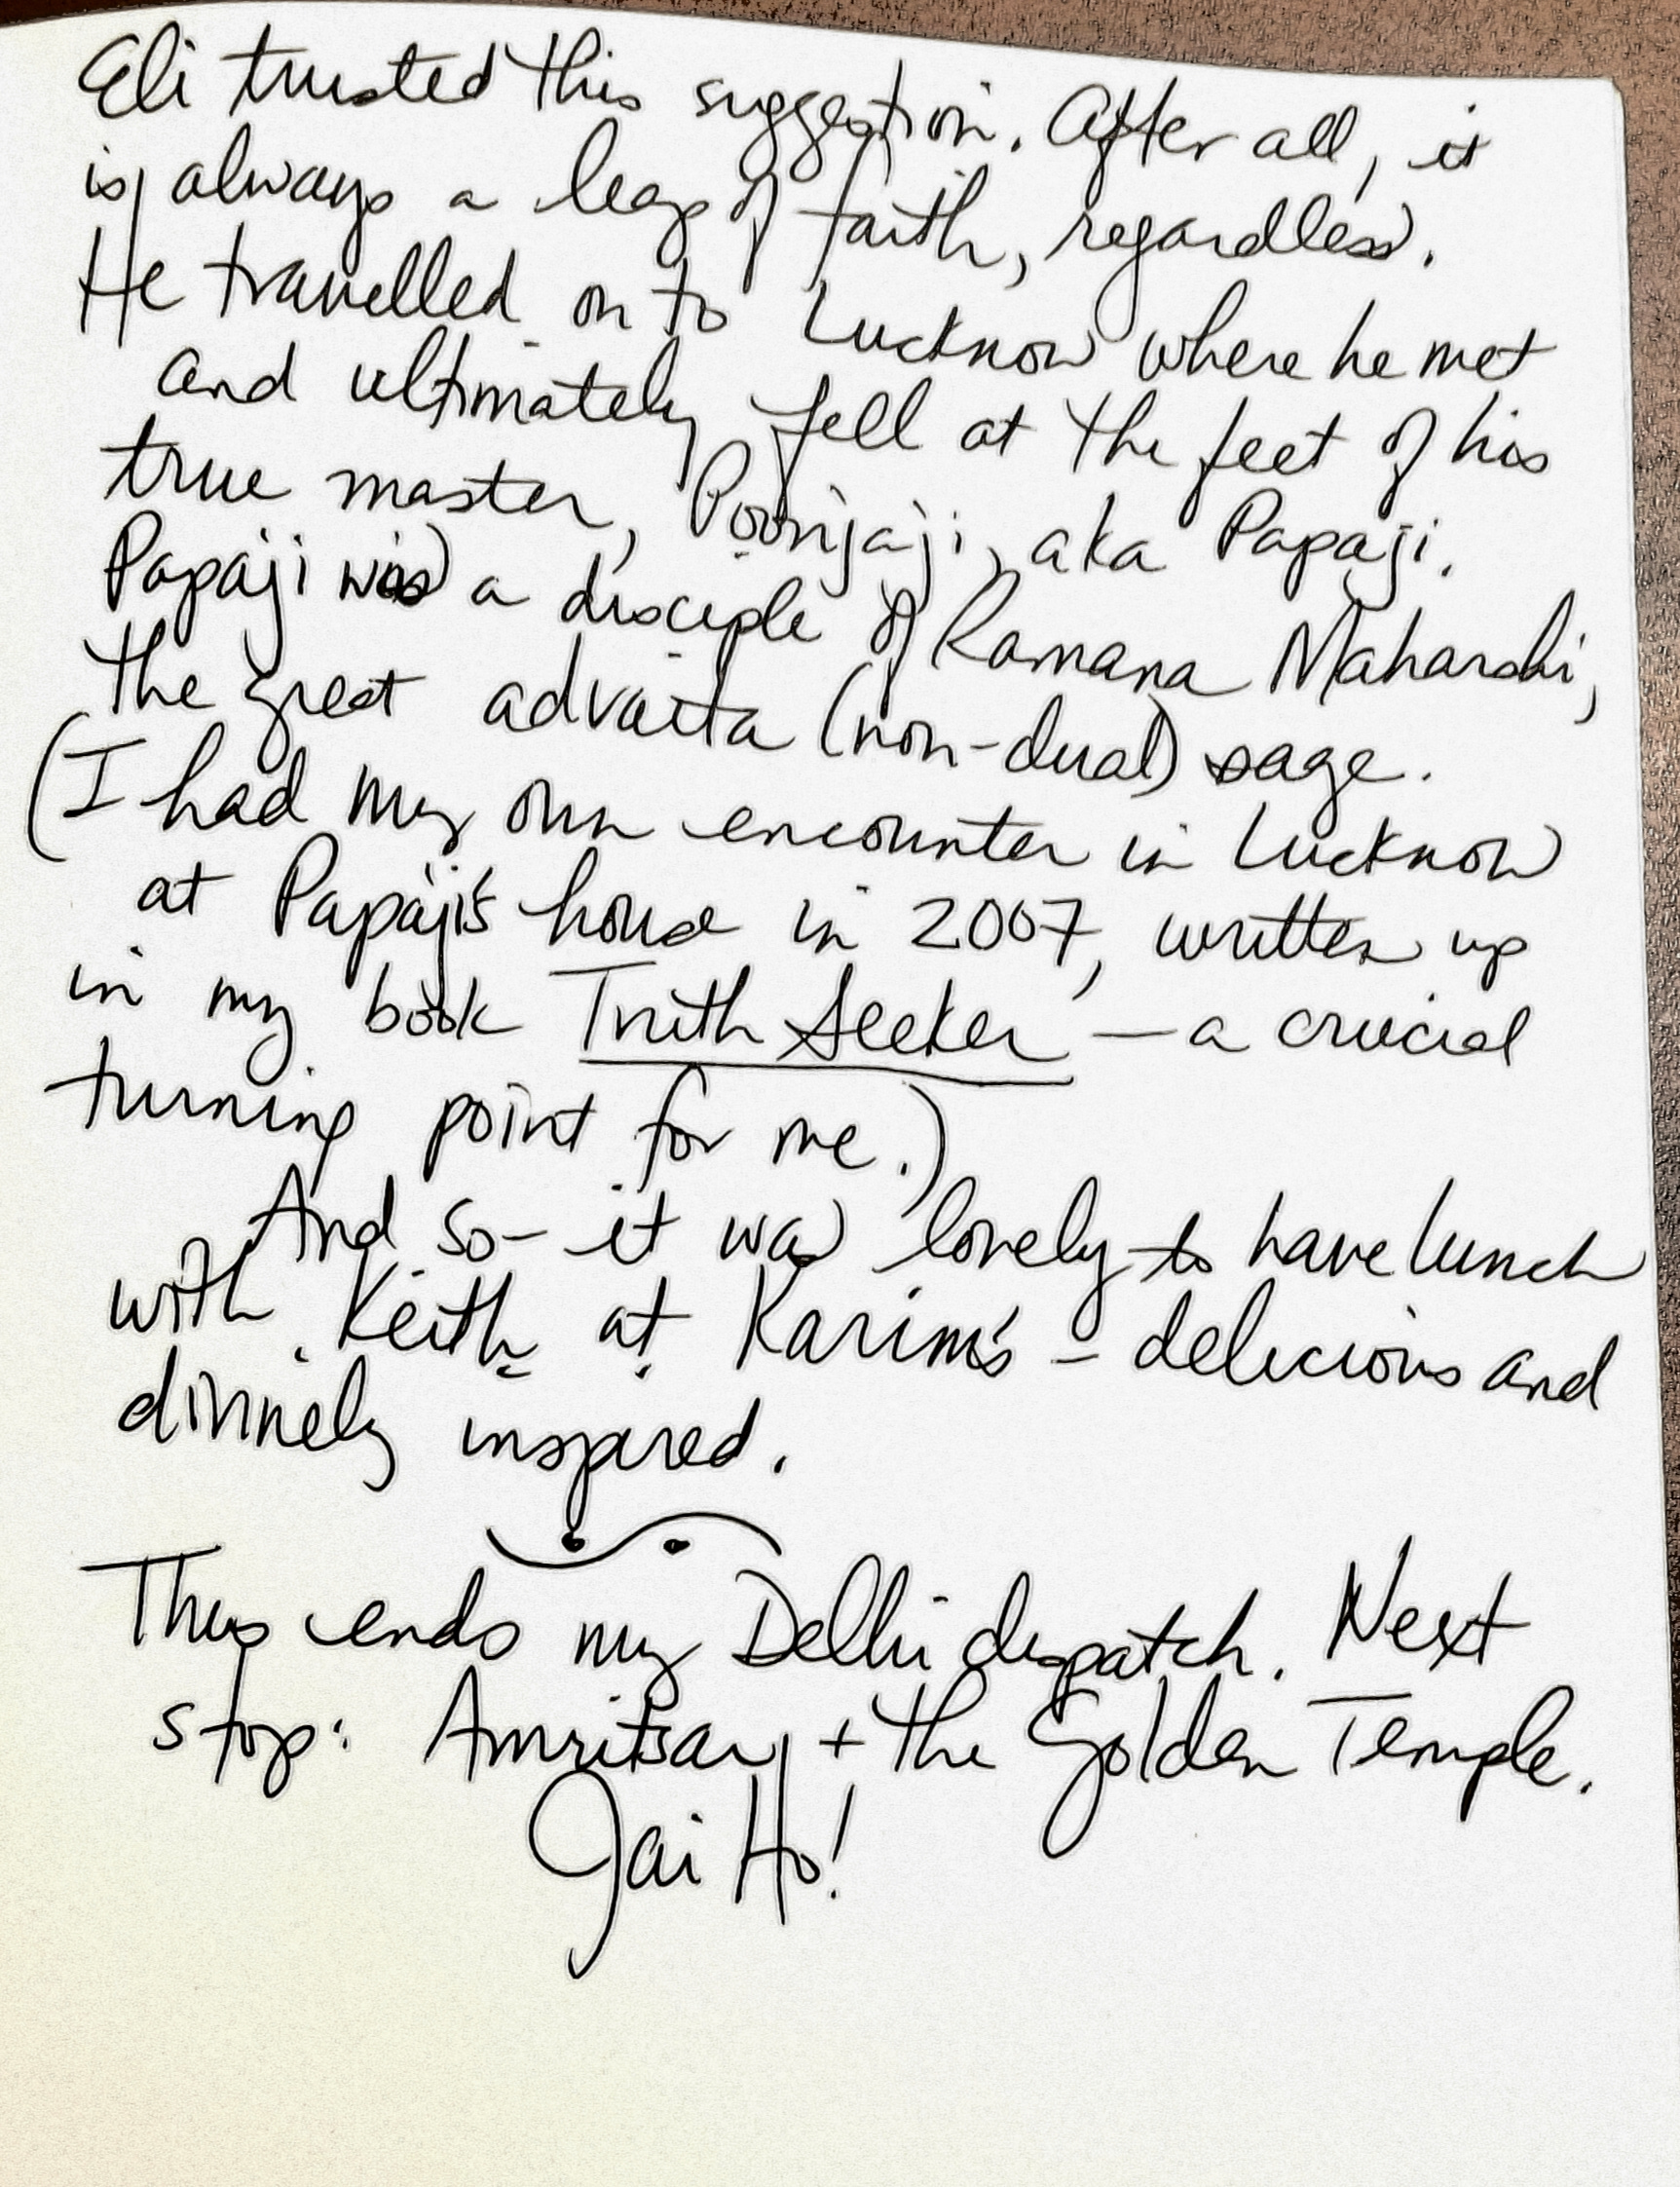 Eli trusted this suggestion. After all, it
is always a leap of faith, regardless.
He travelled on to Lucknow where he met
and ultimately fell at the feet of his
true master, Poonjaji, aka Papaji.
Papaji was a disciple of Ramana Maharshi,
the great advaita (non-dual) sage.
(I had my own encounter in Lucknow
at Papaji's house in 2007, written up
in my book Truth Seeker — a crucial
turning point for me.)
And so - it was lovely to have lunch
with Keith at Karim's - delicious and
divinely inspired.
Thus ends my Delhi dispatch. Next
stop: Amritsar, + the Golden Temple.
Jai Ho!